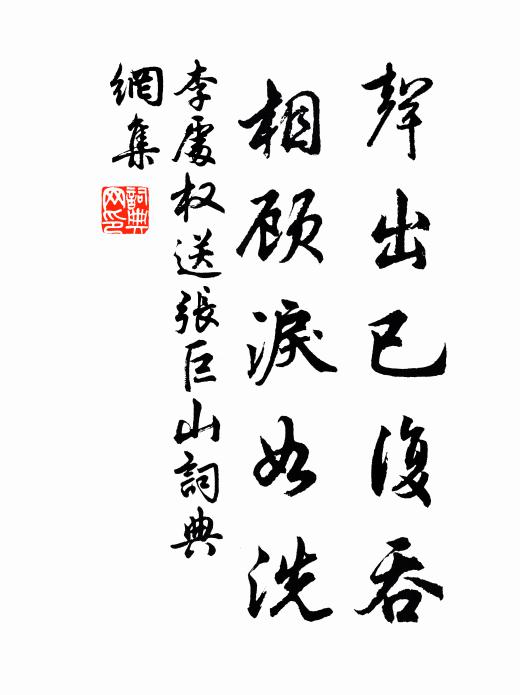 聲出已復吞
相顾淚如洗
李處权送張巨山詞典
網集
詞典
网印